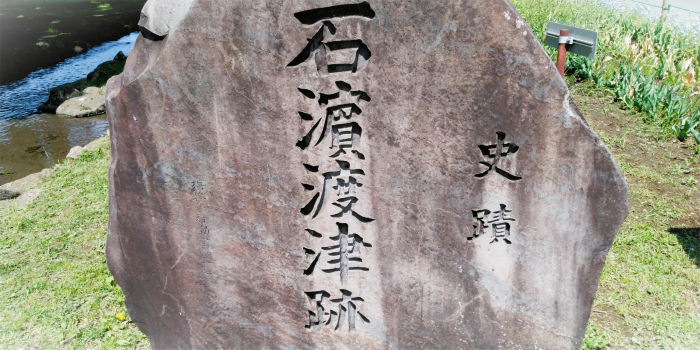 史蹟
石濱渡津跡